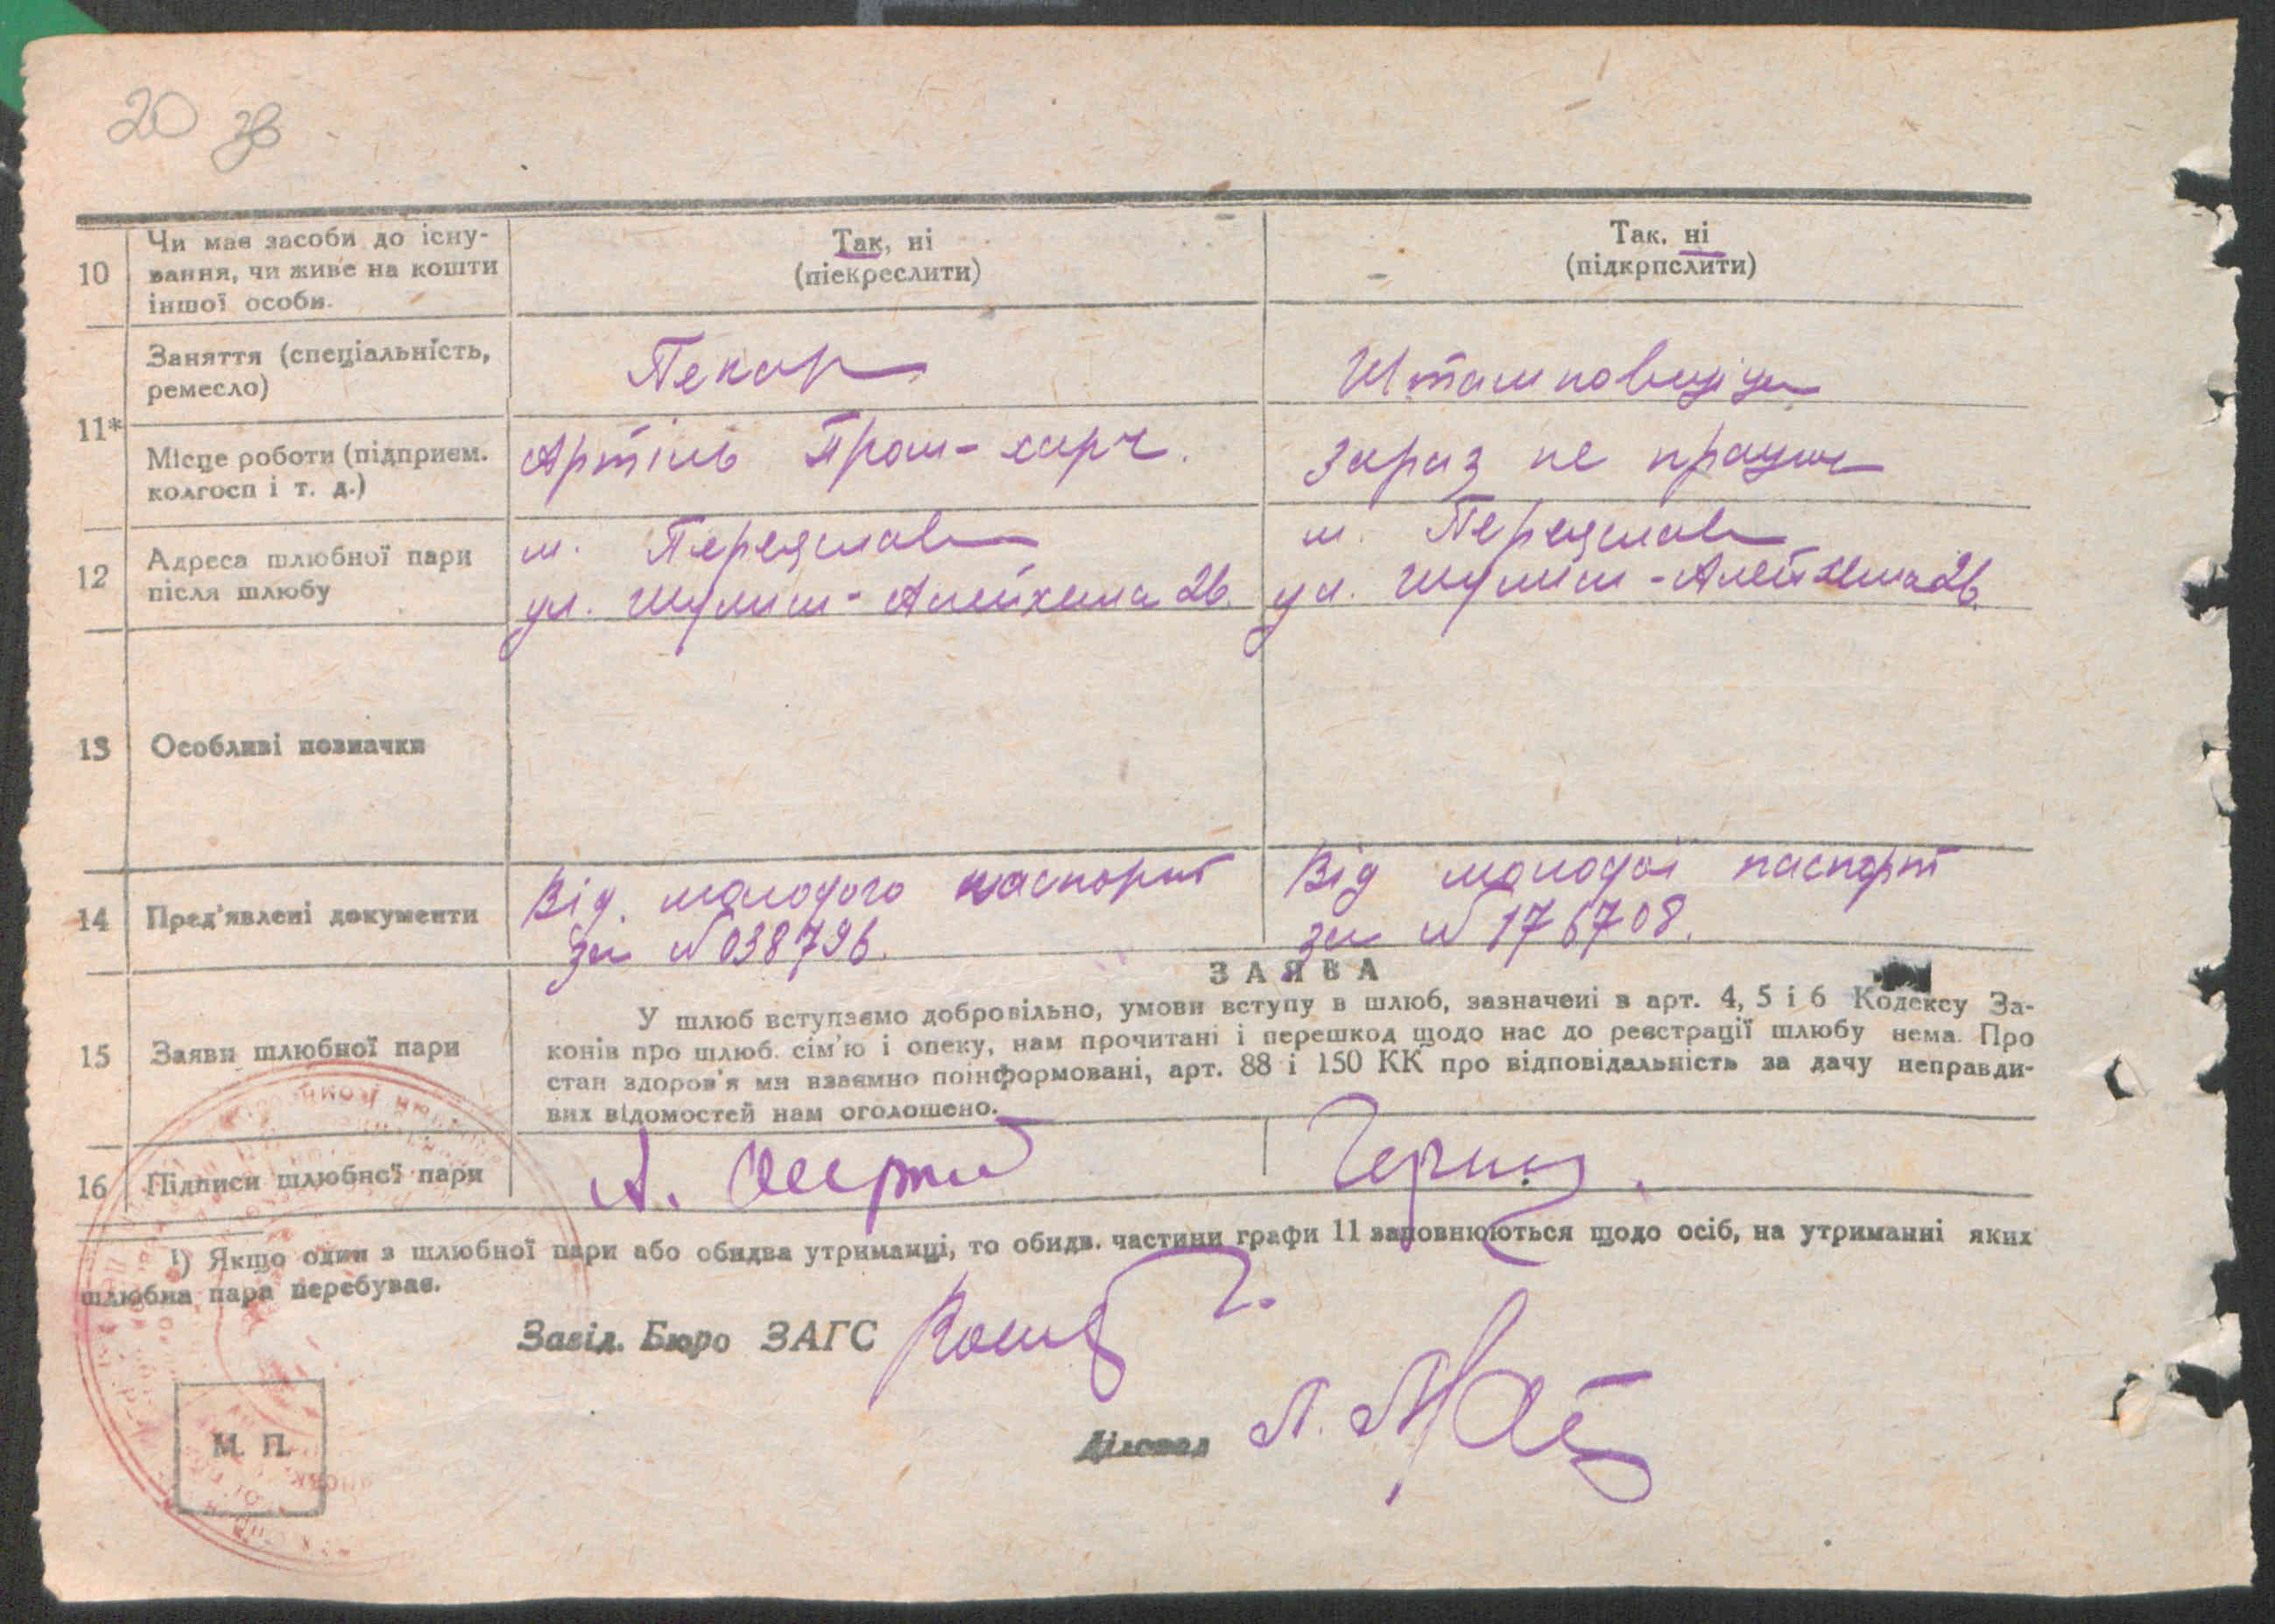 20 зв
10
Чи має засоби до існу-
вання, чи живе на кошти
іншої особи.
Так, ні
(піекреслити)
Так. ні
(підкрпслити)
11*
Заняття (спеціальність,
ремесло)
Пекар
Штамповщіца
Місце роботи (підприєм.
колгосп і т. д.)
Артіль Пром-харч.
Зараз не працює
12
Адреса шлюбної пари
після шлюбу
м. Переяслав
ул. Шулим-Алейхема 26.
м. Переяслав
ул. Шулим-Алейхема 26.
13
Особливі позначки
14
Пред'явлені документи
Від. молодого паспорт
за №038796.
Від молодої паспорт
за №176708.
15
Заяви шлюбної пари
ЗАЯВА
У шлюб вступаємо добровільно, умови вступу в шлюб, зазначені в арт. 4, 5 і 6 Кодексу За-
конів про шлюб. сім'ю і опеку, нам прочитані і перешкод щодо нас до реєстрації шлюбу нема. Про
стан здоров'я ми взаємно поінформовані, арт. 88 і 150 КК про відповідальність за дачу неправди-
вих відомостей нам оголошено.
16
Підписи шлюбної пари
А.
¹) Якщо один з шлюбної пари або обидва утриманці, то обидв. частини графи 11 заповнюються щодо осіб, на утриманні яких
шлюбна пара перебуває.
Завід. Бюро ЗАГС
Діловод Л.
М. П.